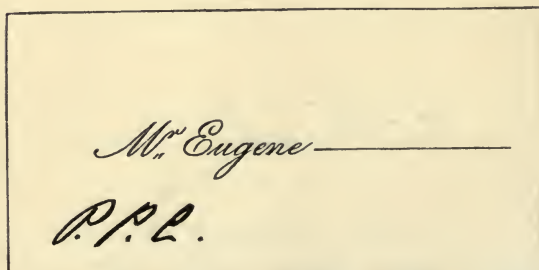 Mr. Eugene ———
P.P.C.